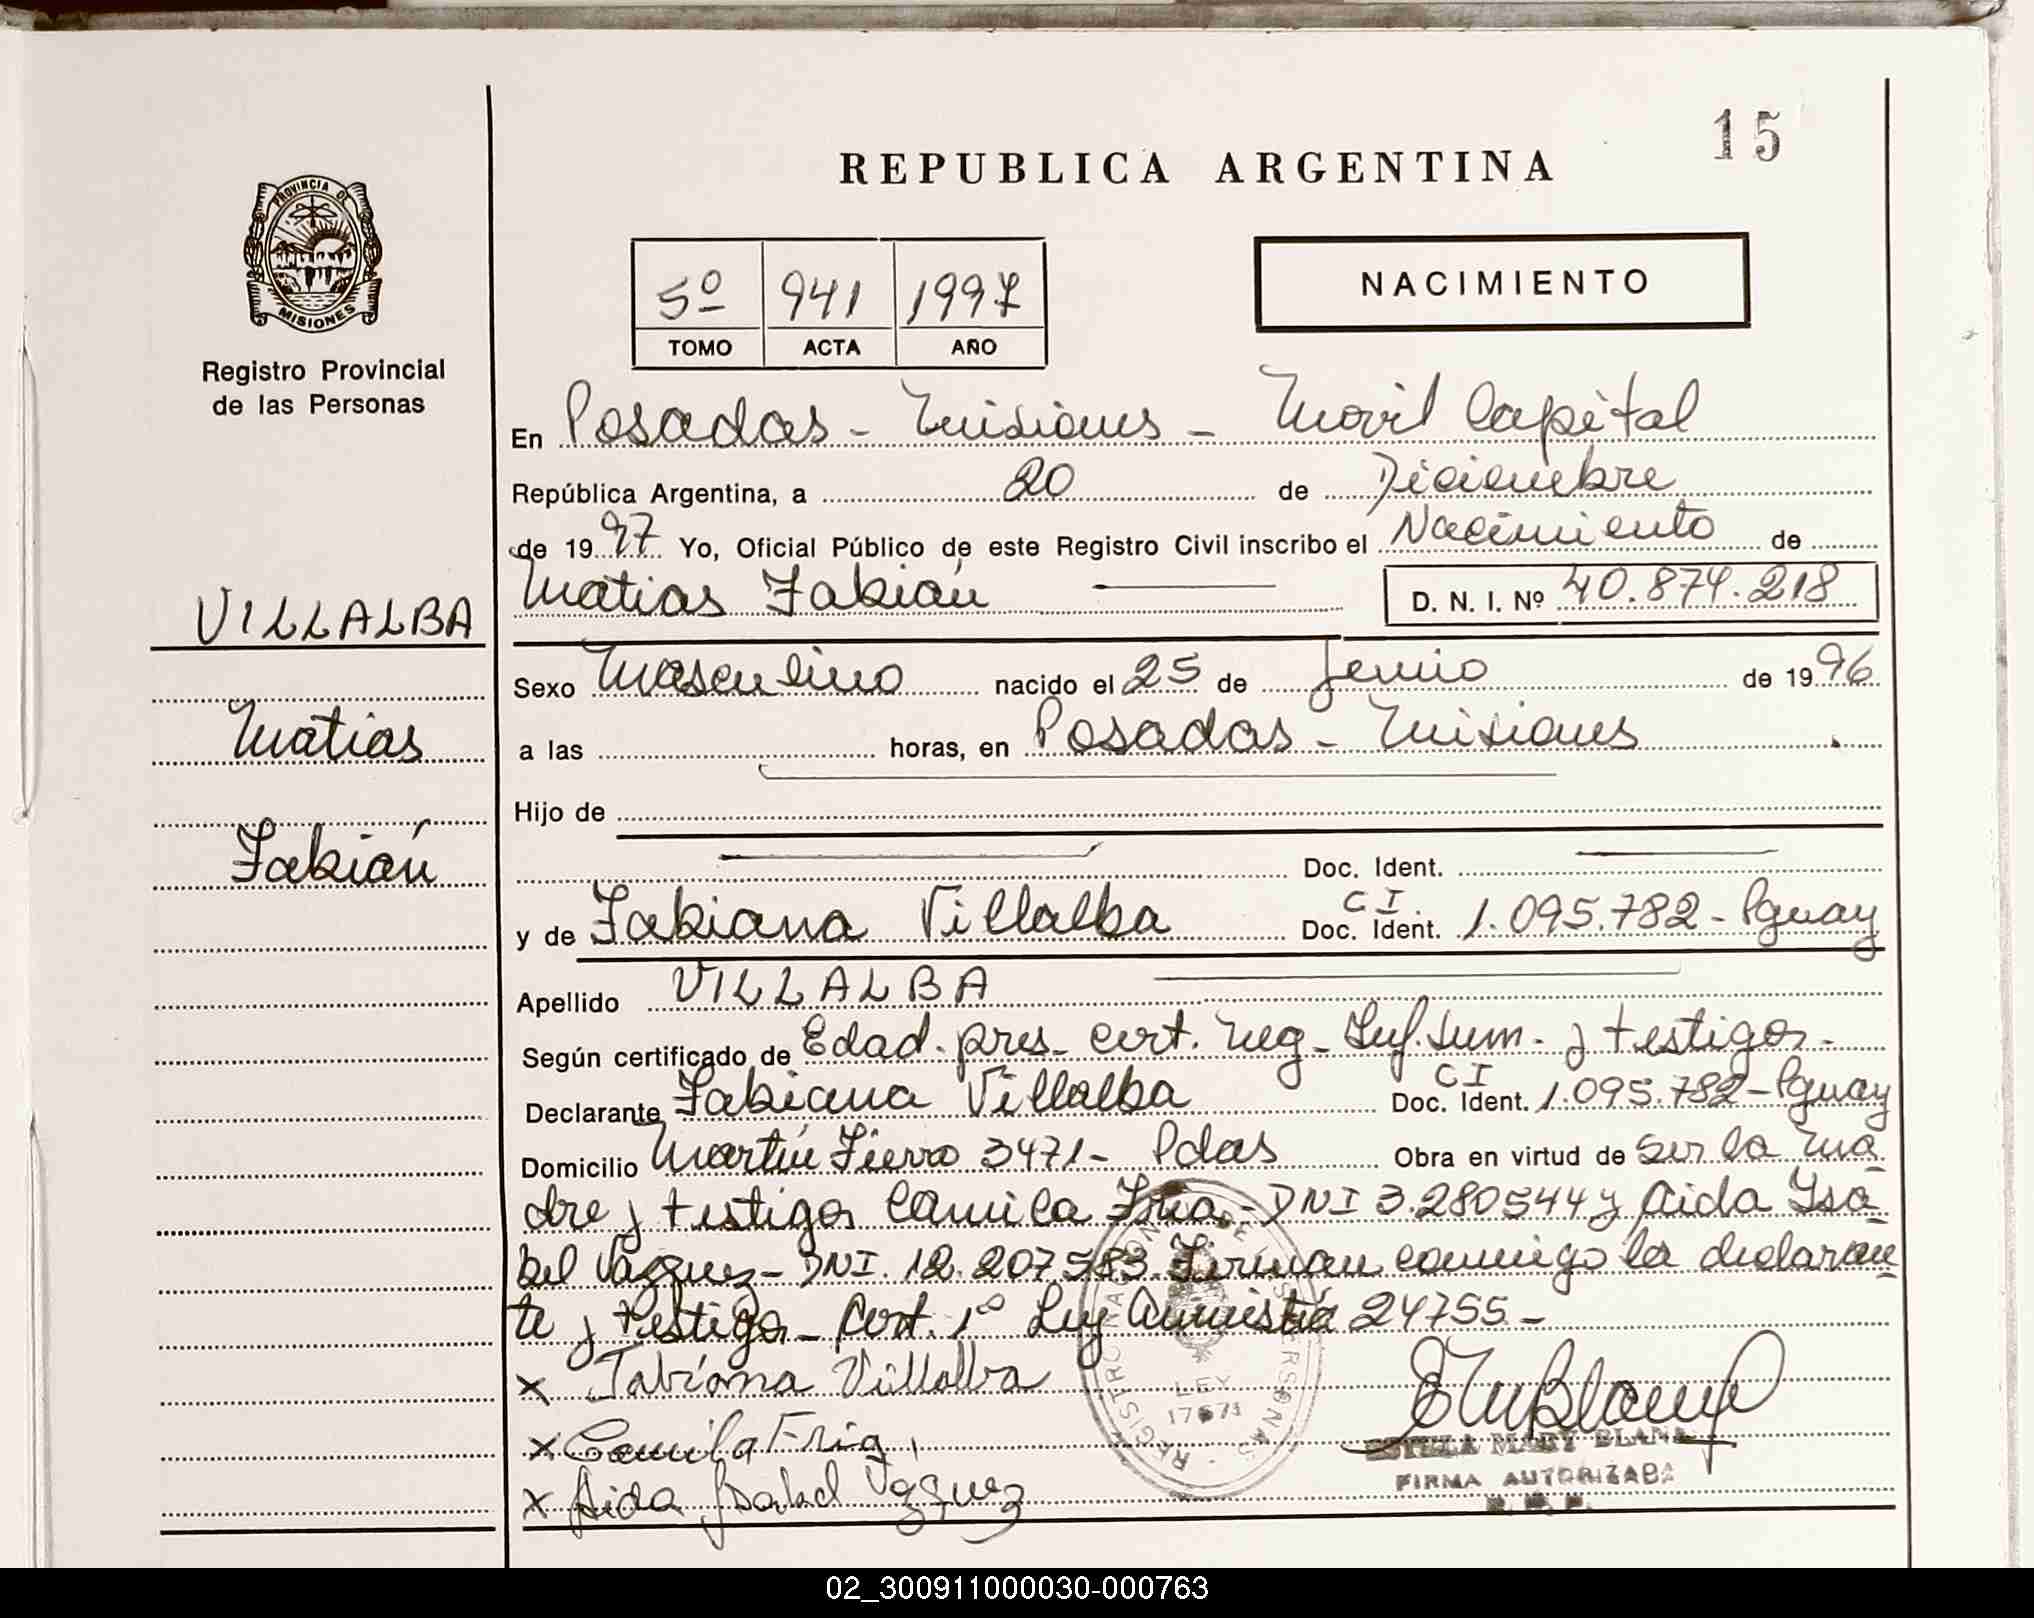 15
REPUBLICA ARGENTINA
PROVINCIA DE
MISIONES
Registro Provincial
de las Personas
5º 941 1997
TOMO ACTA AÑO
NACIMIENTO
En Posadas - Misiones - Movil Capital
República Argentina, a 20 de Diciembre
de 1997 Yo, Oficial Público de este Registro Civil inscribo el Nacimiento de
Matias Fabián D. N. I. Nº 40.874.218
VILLALBA
Matias
Fabián
Sexo Masculino nacido el 25 de Junio de 1996
a las horas, en Posadas - Misiones
Hijo de
Doc. Ident.
y de Fabiana Villalba C I. Doc. Ident. 1.095.782 - Pguay
Apellido VILLALBA
Según certificado de Edad. pres. cert. Neg - Inf. Sum. y testigos -
Declarante Fabiana Villalba CI Doc. Ident. 1.095.782 - Pguay
Domicilio Martín Fierro 3471 - Pdas Obra en virtud de ser la ma
dre y testigos Camila Fria - DNI 3.280544 y Aida Isa
bel Vázquez - DNI. 12.207.583 Firman conmigo la declaran
te y testigos - Cert. 1º Ley Amnistía 24755 -
x Fabiana Villalba
x Camila Fria
x Aida Isabel Vázquez
REGISTRO DE PERSONAS
LEY
17671
FIRMA AUTORIZADA
02_300911000030-000763